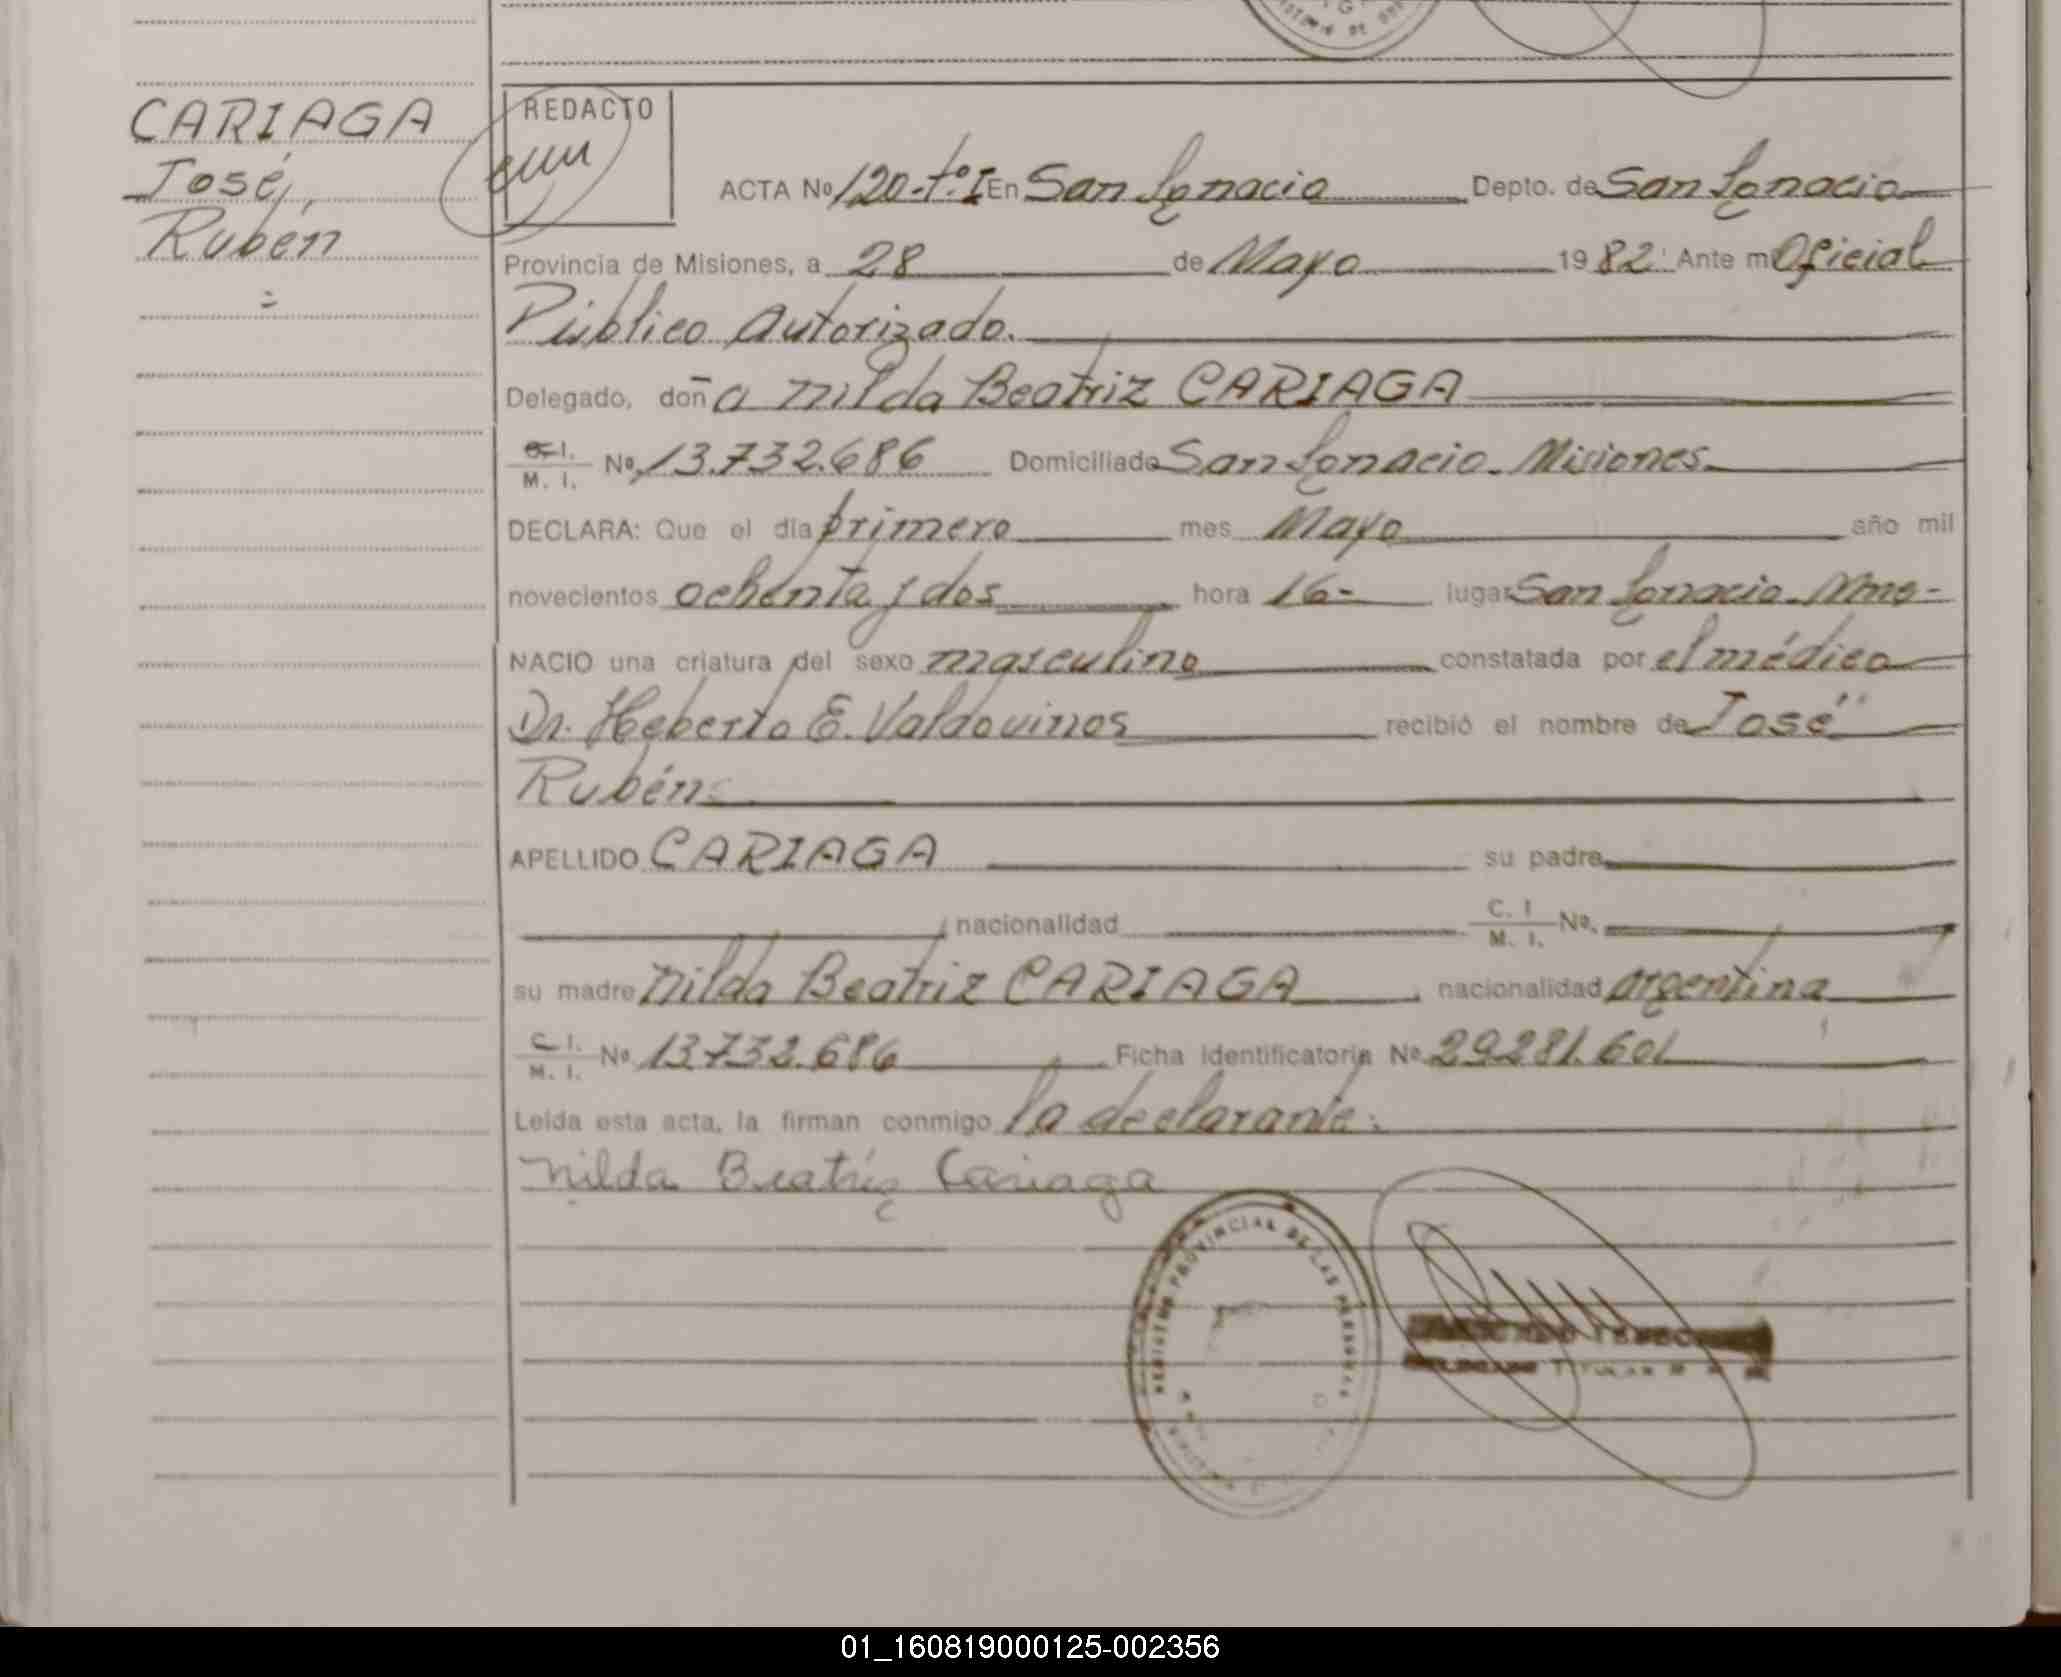 CARIAGA
José
Rubén
REDACTO
ACTA Nº 120-tº I En San Ignacio Depto. de San Ignacio
Provincia de Misiones, a 28 de Mayo 1982 Ante mi Oficial
Público Autorizado.
Delegado, doña Nilda Beatriz CARIAGA
C. I. / M. I. Nº 13.732.686 Domiciliado San Ignacio - Misiones
DECLARA: Que el día primero mes Mayo año mil
novecientos ochenta y dos hora 16- lugar San Ignacio - Mnes-
NACIO una criatura del sexo masculino constatada por el médico
Dr. Heberto E. Valdovinos recibió el nombre de José
Rubén
APELLIDO CARIAGA su padre
nacionalidad C. I. / M. I. Nº.
su madre Nilda Beatriz CARIAGA, nacionalidad argentina
C. I. / M. I. Nº 13.732.686 Ficha identificatoria Nº 29.281.601
Leída esta acta, la firman conmigo la declarante:
Nilda Beatriz Cariaga
REGISTRO PROVINCIAL DE LAS PERSONAS
TITULAR
01_160819000125-002356